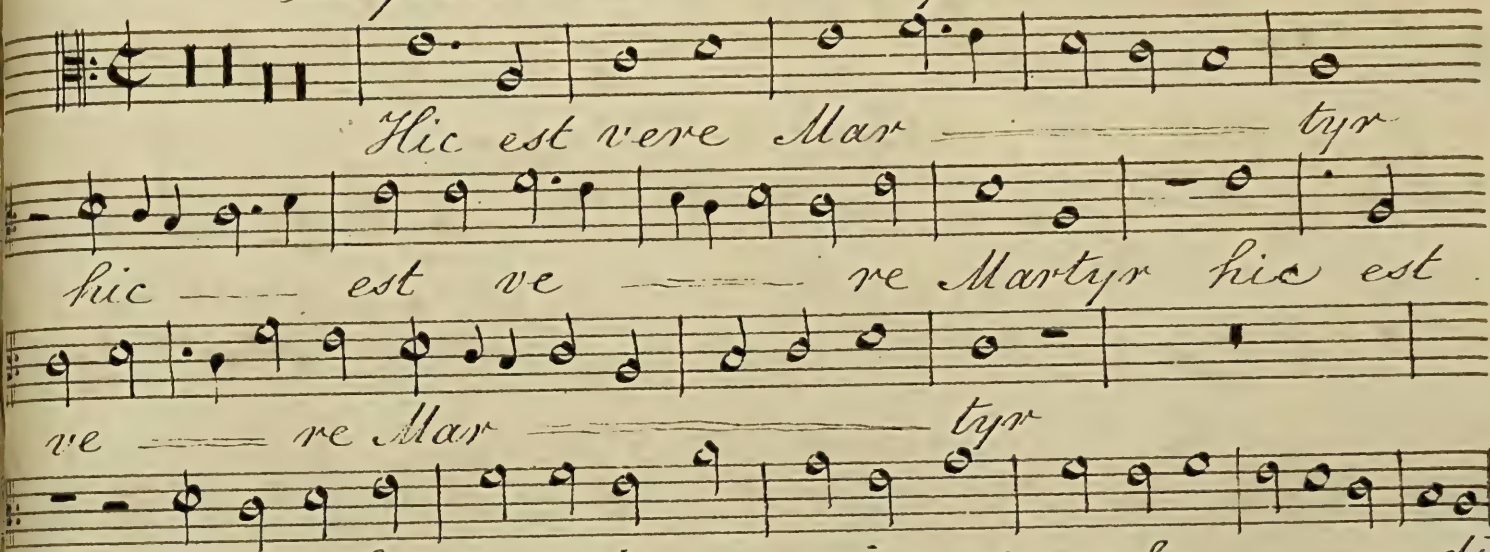 Hic est vere Mar tyr
hic est ve re Martyr hic est
ve re Mar tyr